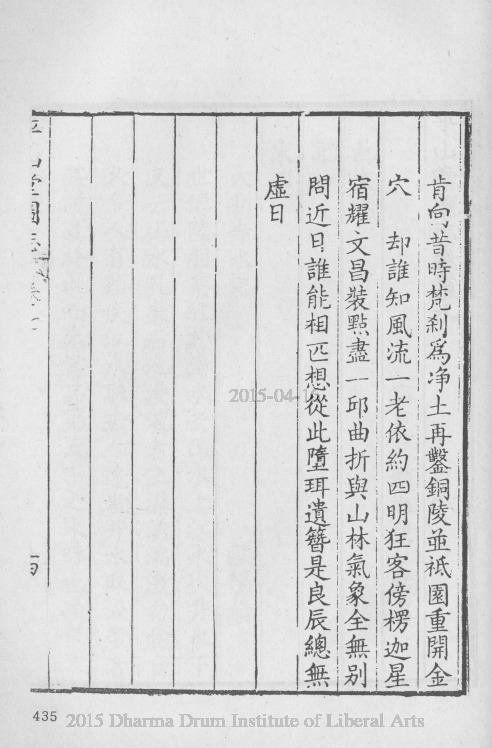 肯向昔時梵刹爲净土再鑿銅陵並祗園重開金
穴　却誰知風流一老依約四明狂客傍楞迦星
宿耀文昌裝㸃盡一邱曲折與山林氣象全無別
問近日誰能相匹想從此墮珥遺簪是良辰總無
虛日
平山堂圖志
卷七
2015-04-1
435
2015 Dharma Drum Institute of Liberal Arts